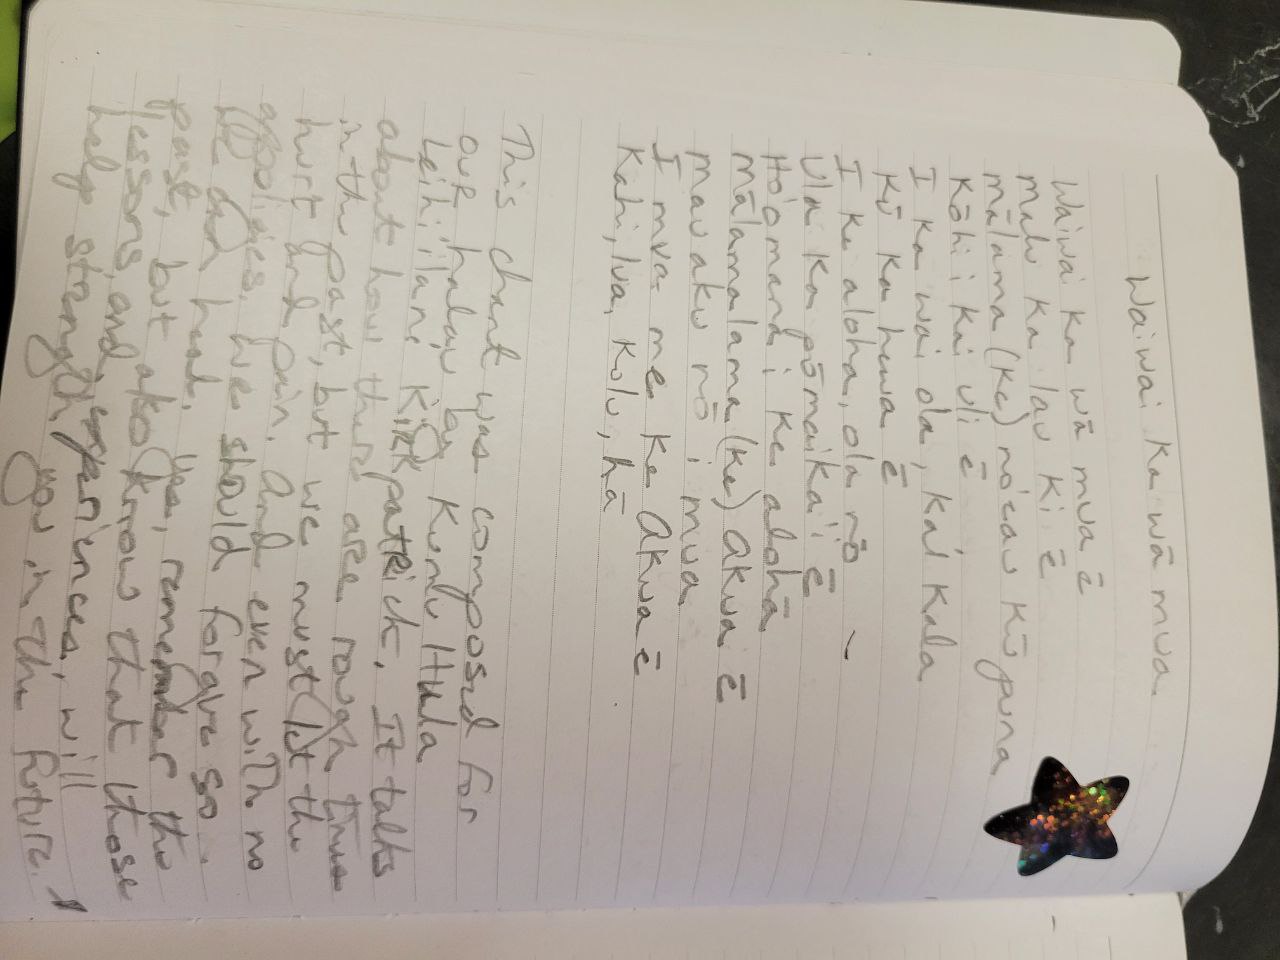 Waiwai Ka wā mua
Waiwai Ka wā mua ē
malu ka lau Ki ē
mālama (ke) no'eau Kūpuna
Kōhi i Kai uli ē
I Ka wai ola, Kai Kala
Kū Ka hewa ē
I Ke aloha, ola nō
Ula Ka pōmaika'i ē
Ho'omana i Ke aloha
mālamalama (Ke) Akua ē
mau aku nō i mua
I mua me Ke Akua ē
Kahi, lua, Kolu, hā
This chant was composed for
our halau by Kumu Hula
Leihi'ilani Kirkpatrick. It talks
about how there are rough times
in the past, but we must let the
hurt and pain. And even with no
appoligies, we should forgive so.
the past, but also know that those
lessons and experiences, will
help strength you in the future.